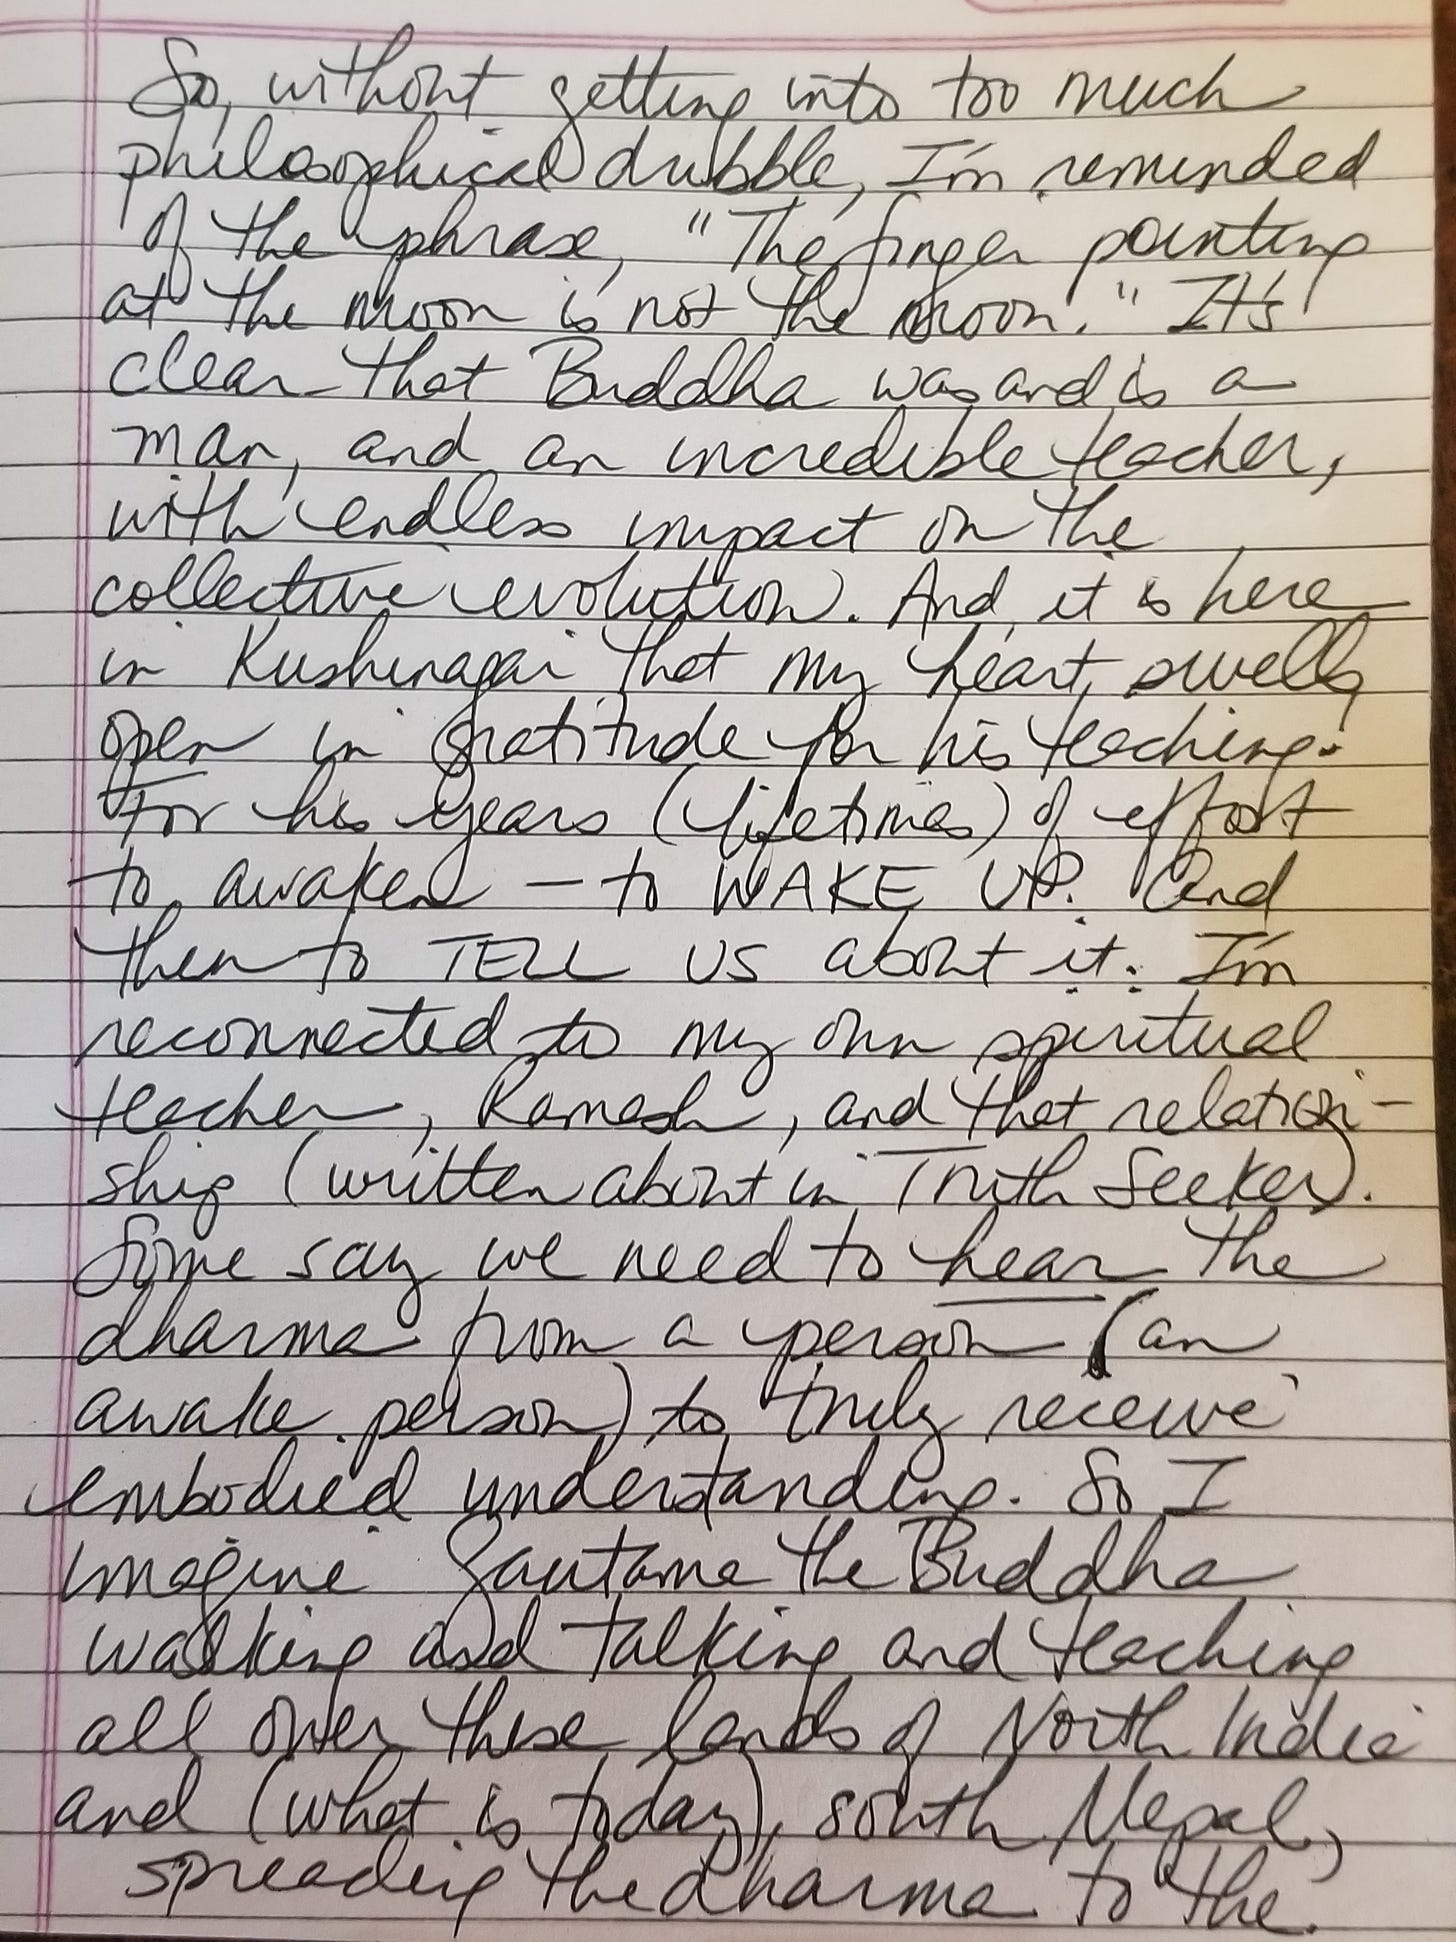 So, without getting into too much
philosophical drubble, I'm reminded
of the phrase, "The finger pointing
at the moon is not the moon." It's
clear that Buddha was and is a
man, and an incredible teacher,
with endless impact on the
collective evolution. And it is here
in Kushinagar that my heart swells
open in gratitude for his teaching.
For his years (lifetimes) of effort
to awaken – to WAKE UP. And
then to TELL US about it. I'm
reconnected to my own spiritual
teacher, Ramesh, and that relation-
ship (written about in Truth Seeker).
Some say we need to hear the
dharma from a person (an
awake person) to truly receive
embodied understanding. So I
imagine Gautama the Buddha
walking and talking and teaching
all over these lands of North India
and (what is today), south Nepal,
spreading the dharma to the.